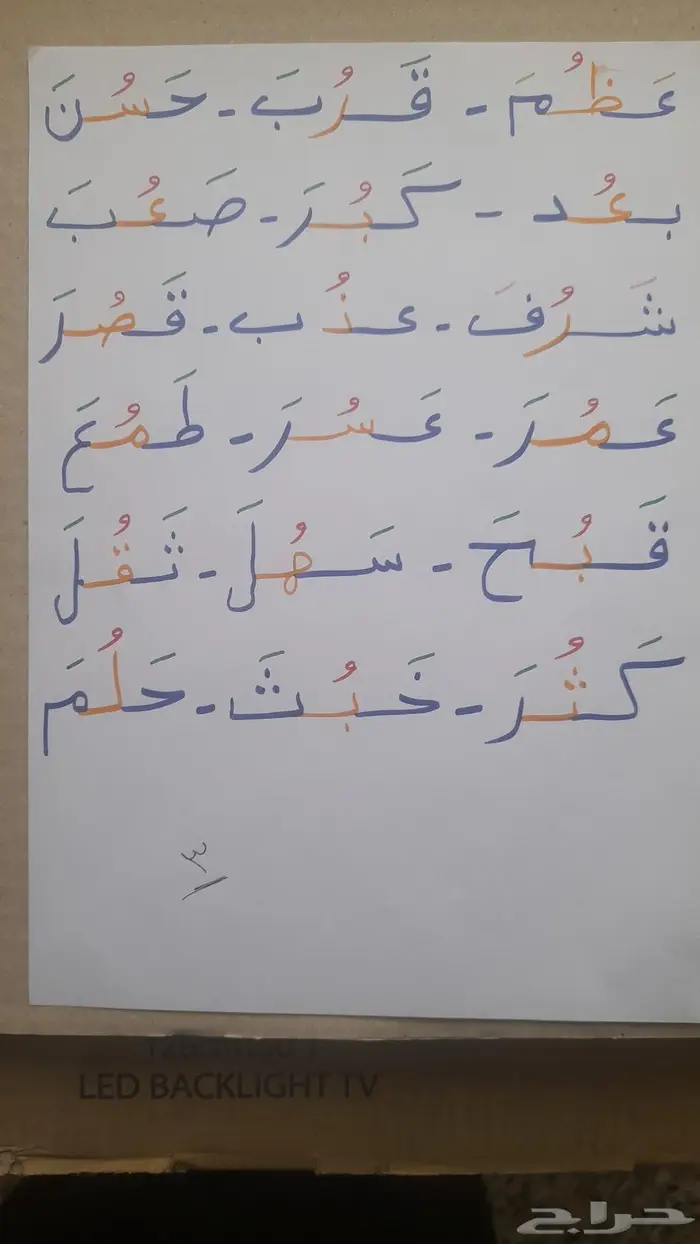 عَظُمَ - قَرُبَ - حَسُنَ
بعُد - كَبُرَ - صَعُبَ
شَرُفَ - عذُب - قَصُرَ
عَمُرَ - عَسُرَ - طَمُعَ
قَبُحَ - سَهُلَ - ثَقُلَ
كَثُرَ - خَبُثَ - حَلُمَ
٣/
LED BACKLIGHT TV
حراج